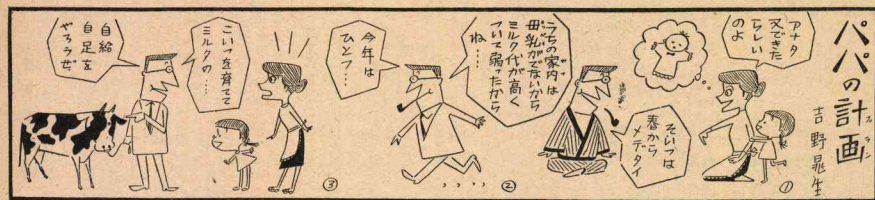 パパの計画
プラン
吉野晁生
アナタ
又できた
らしい
のよ
①
そいつは
春から
メデタイ
うちの家内は
母乳がでないから
ミルク代が高く
ついて弱ったから
ね……
②
今年は
ひとつ…
こいつを育てて
ミルクの……
③
自給
自足を
やろうぜ